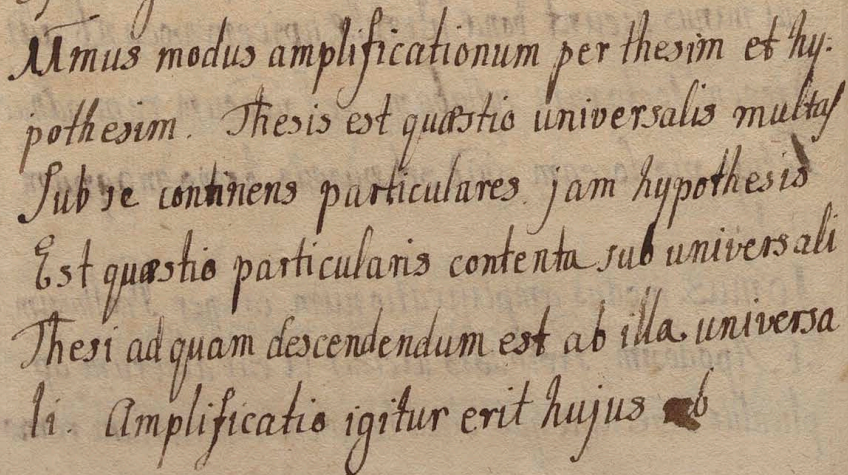 IIImus modus amplificationum per thesim et hy-
pothesim. Thesis est quæstio universalis multas
sub se continens particulares. jam hypothesis
Est quæstio particularis contenta sub universali
Thesi ad quam descendendum est ab illa universa
li. Amplificatio igitur erit hujus